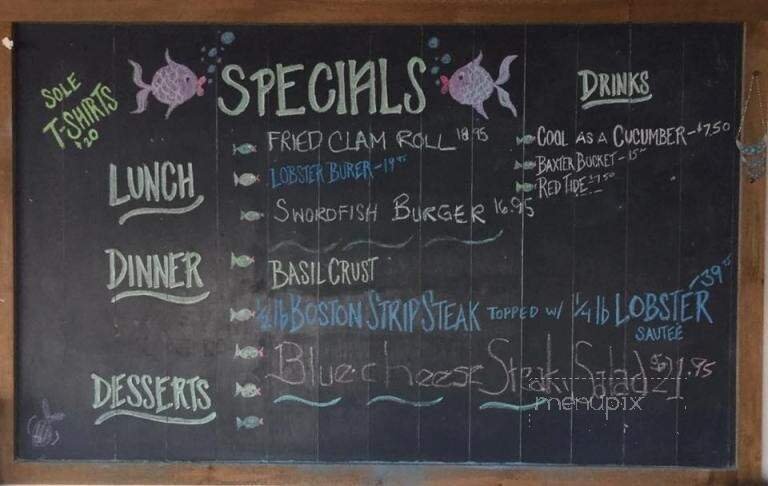 SOLE
T-SHIRTS
$20
SPECIALS
LUNCH
FRIED CLAM ROLL 18.95
LOBSTER BURER - 19
SWORDFISH BURGER 16.95
DINNER
BASIL CRUST
BOSTON STRIP STEAK TOPPED W/ 1/4 lb LOBSTER 39
SAUTEÉ
Blue cheese Steak Salad $21.95
DESSERTS
DRINKS
COOL AS A CUCUMBER - $7.50
BAXTER BUCKET - 15
RED TIDE 7.50
menupix